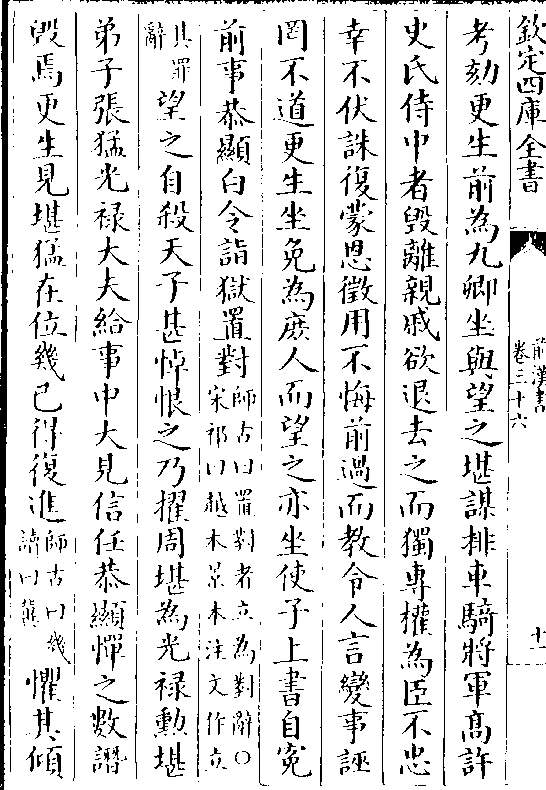 欽定四庫全書
前漢書
卷三十六
十一
考劾更生前為九卿坐與望之堪謀排車騎將軍髙許
史氏侍中者毁離親戚欲退去之而獨專權為臣不忠
幸不伏誅復蒙恩徴用不悔前過而教令人言變事誣
罔不道更生坐免為庶人而望之亦坐使子上書自寃
前事恭顯白令詣獄置對師古曰置對者立為對辭○宋祁曰越本景本注文作立
其罪辭望之自殺天子甚悼恨之乃擢周堪為光禄勲堪
弟子張猛光禄大夫給事中大見信任恭顯憚之數譖
毁焉更生見堪猛在位幾已得復進師古曰幾讀曰冀懼其傾